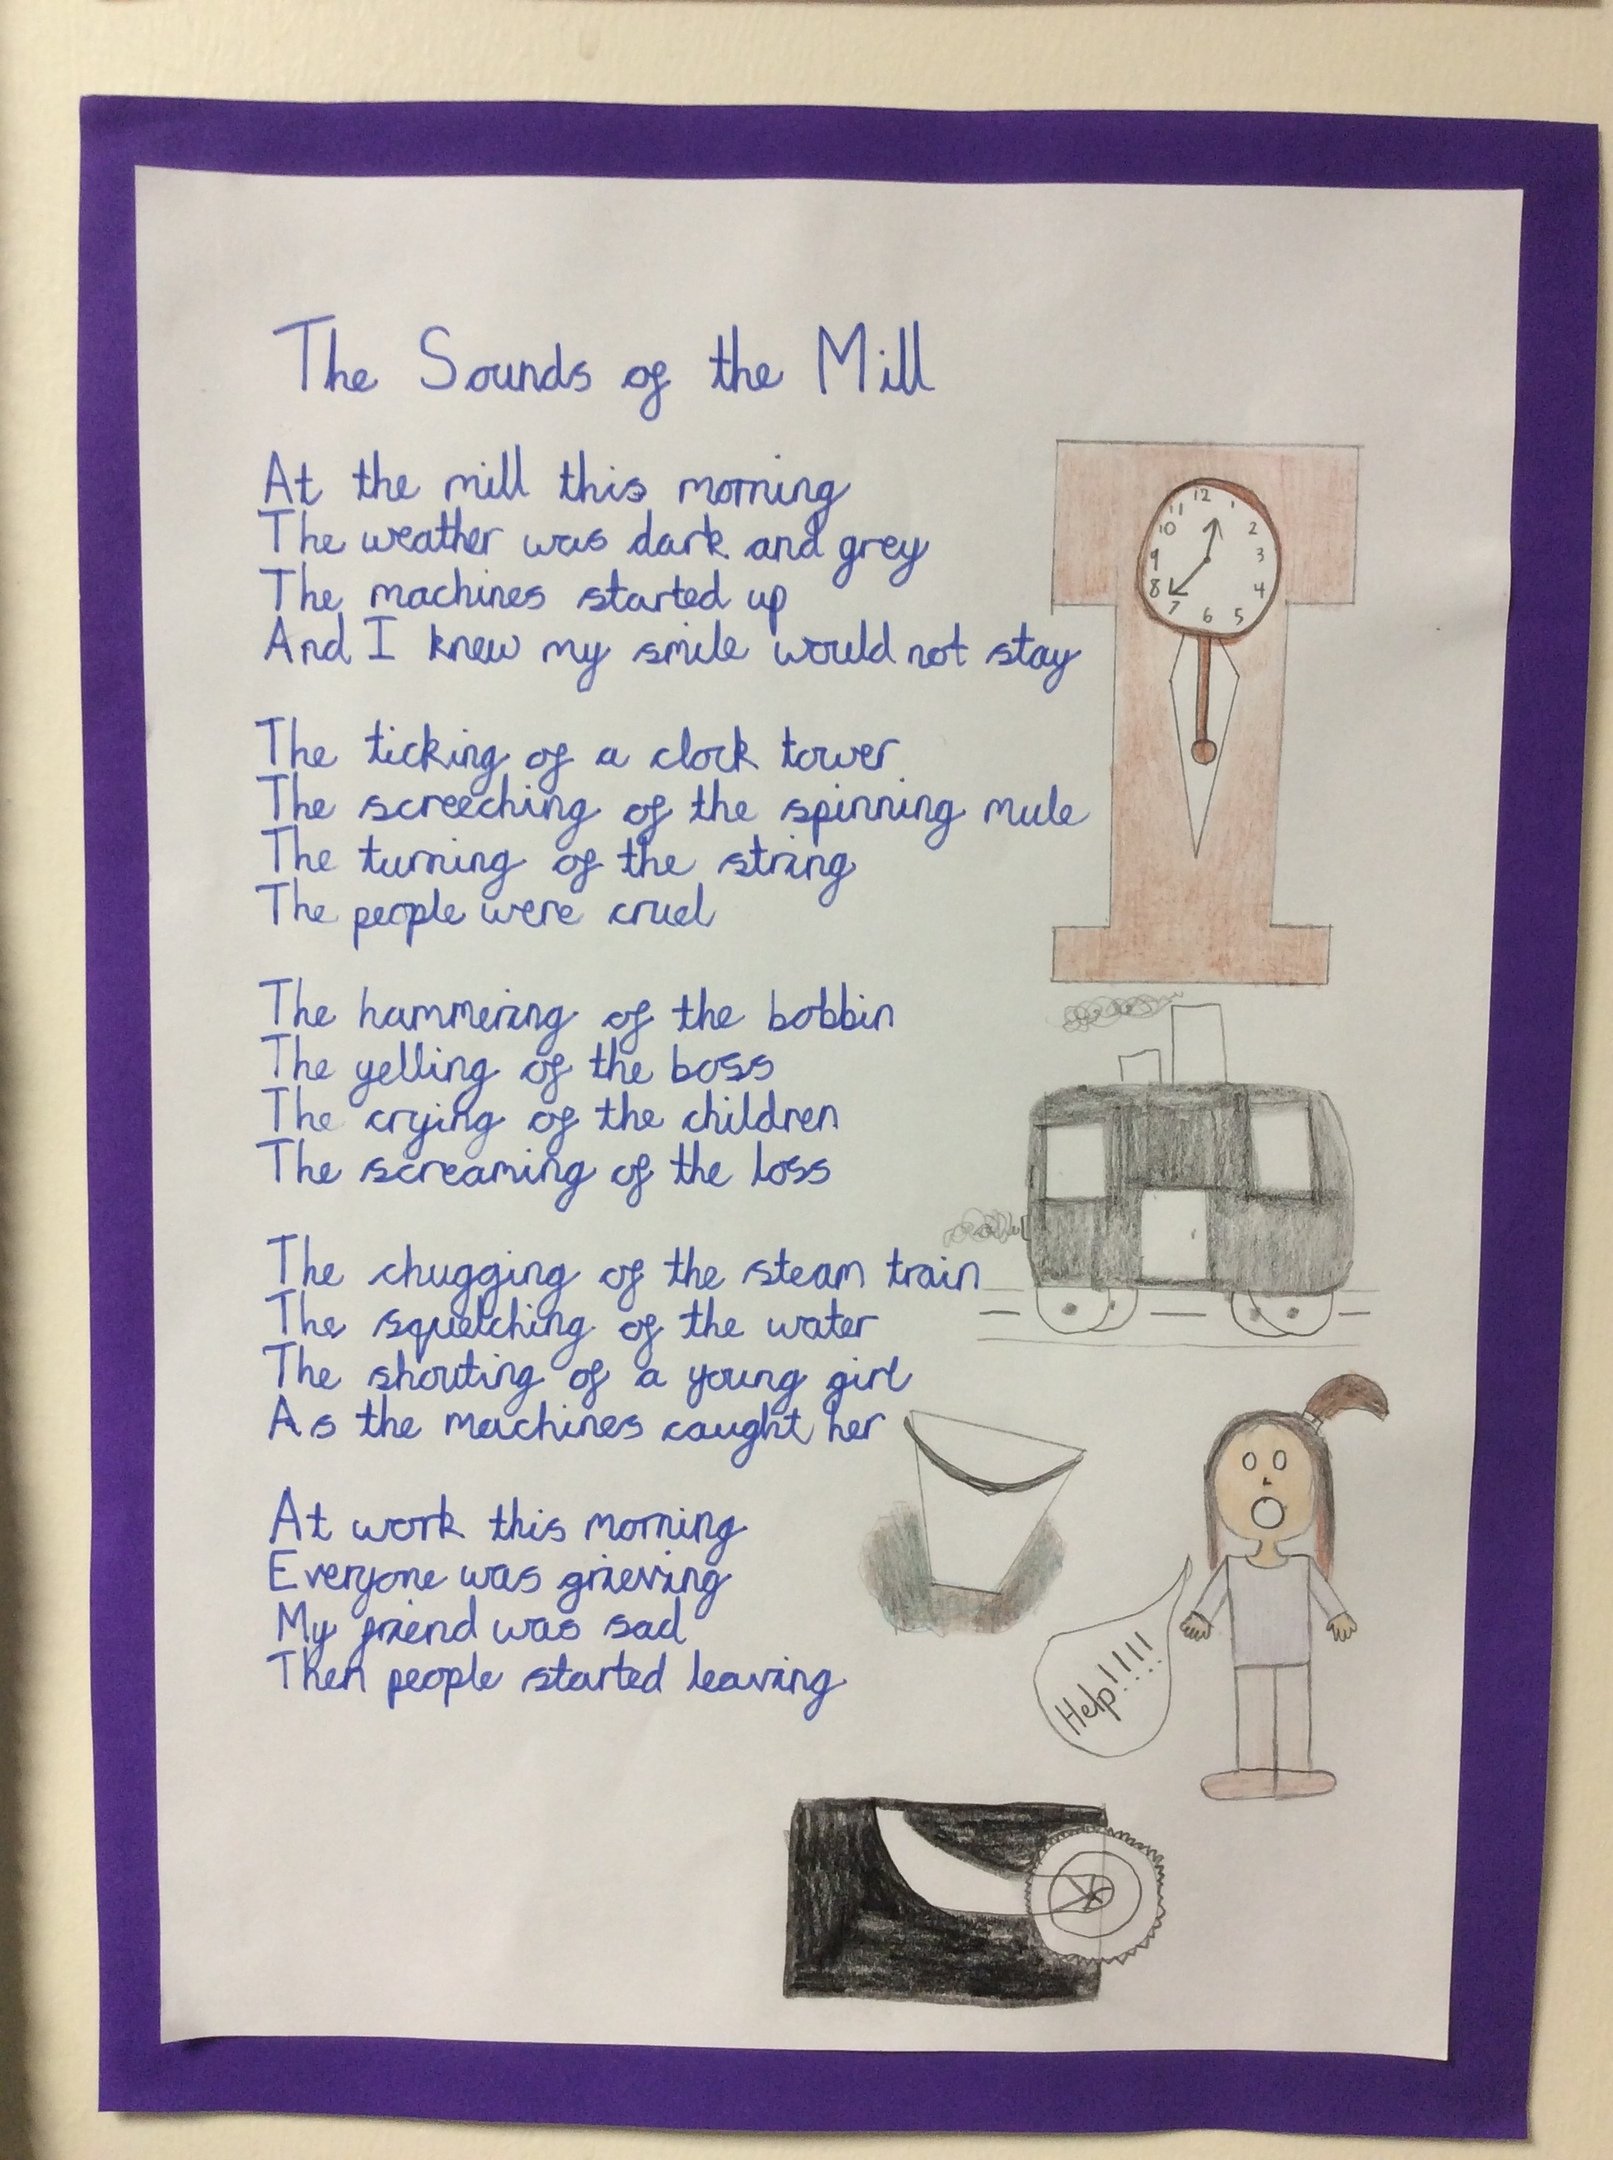 The Sounds of the Mill
At the mill this morning
The weather was dark and grey
The machines started up
And I knew my smile would not stay
The ticking of a clock tower
The screeching of the spinning mule
The turning of the string
The people were cruel
The hammering of the bobbin
The yelling of the boss
The crying of the children
The screaming of the loss
The chugging of the steam train
The squelching of the water
The shouting of a young girl
As the machines caught her
At work this morning
Everyone was grieving
My friend was sad
Then people started leaving
12
1
2
3
4
5
6
7
8
9
10
11
Help!!!!